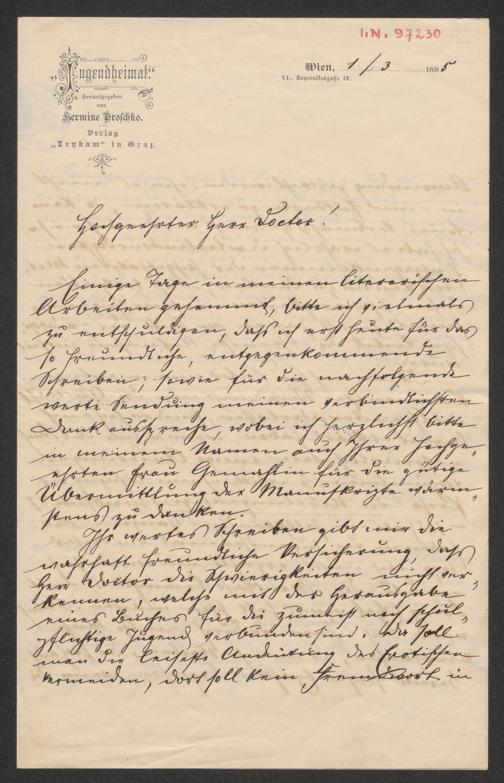 I.N. 97230
„Jugendheimat.“
Herausgegeben
von
Hermine Proschko.
Verlag
„Leykam“ in Graz.
Wien, 1/3 1895
VI., Kopernikusgasse 12.
Hochgeehrter Herr Doctor!
Einige Tage in meinen literarischen
Arbeiten gehemmt, bitte ich vielmals
zu entschuldigen, dass ich erst heute für das
so freundliche, entgegenkommende
Schreiben; sowie für die nachfolgende
werte Sendung meinen verbindlichsten
Dank ausspreche, wobei ich herzlichst bitte
in meinem Namen auch Ihrer hochge-
ehrten Frau Gemahlin für die gütige
Übermittlung der Manuskripte wärm-
stens zu danken.
Ihr wertes Schreiben gibt mir die
wahrhaft freundliche Versicherung, dass
Herr Doctor die Schwierigkeiten nicht ver-
kennen, welche mit der Herausgabe
eines Buches für die zumeist noch schul-
pflichtige Jugend verbunden sind. Da soll
man die leiseste Andeutung des Erotischen
vermeiden, dort soll kein Fremdwort in